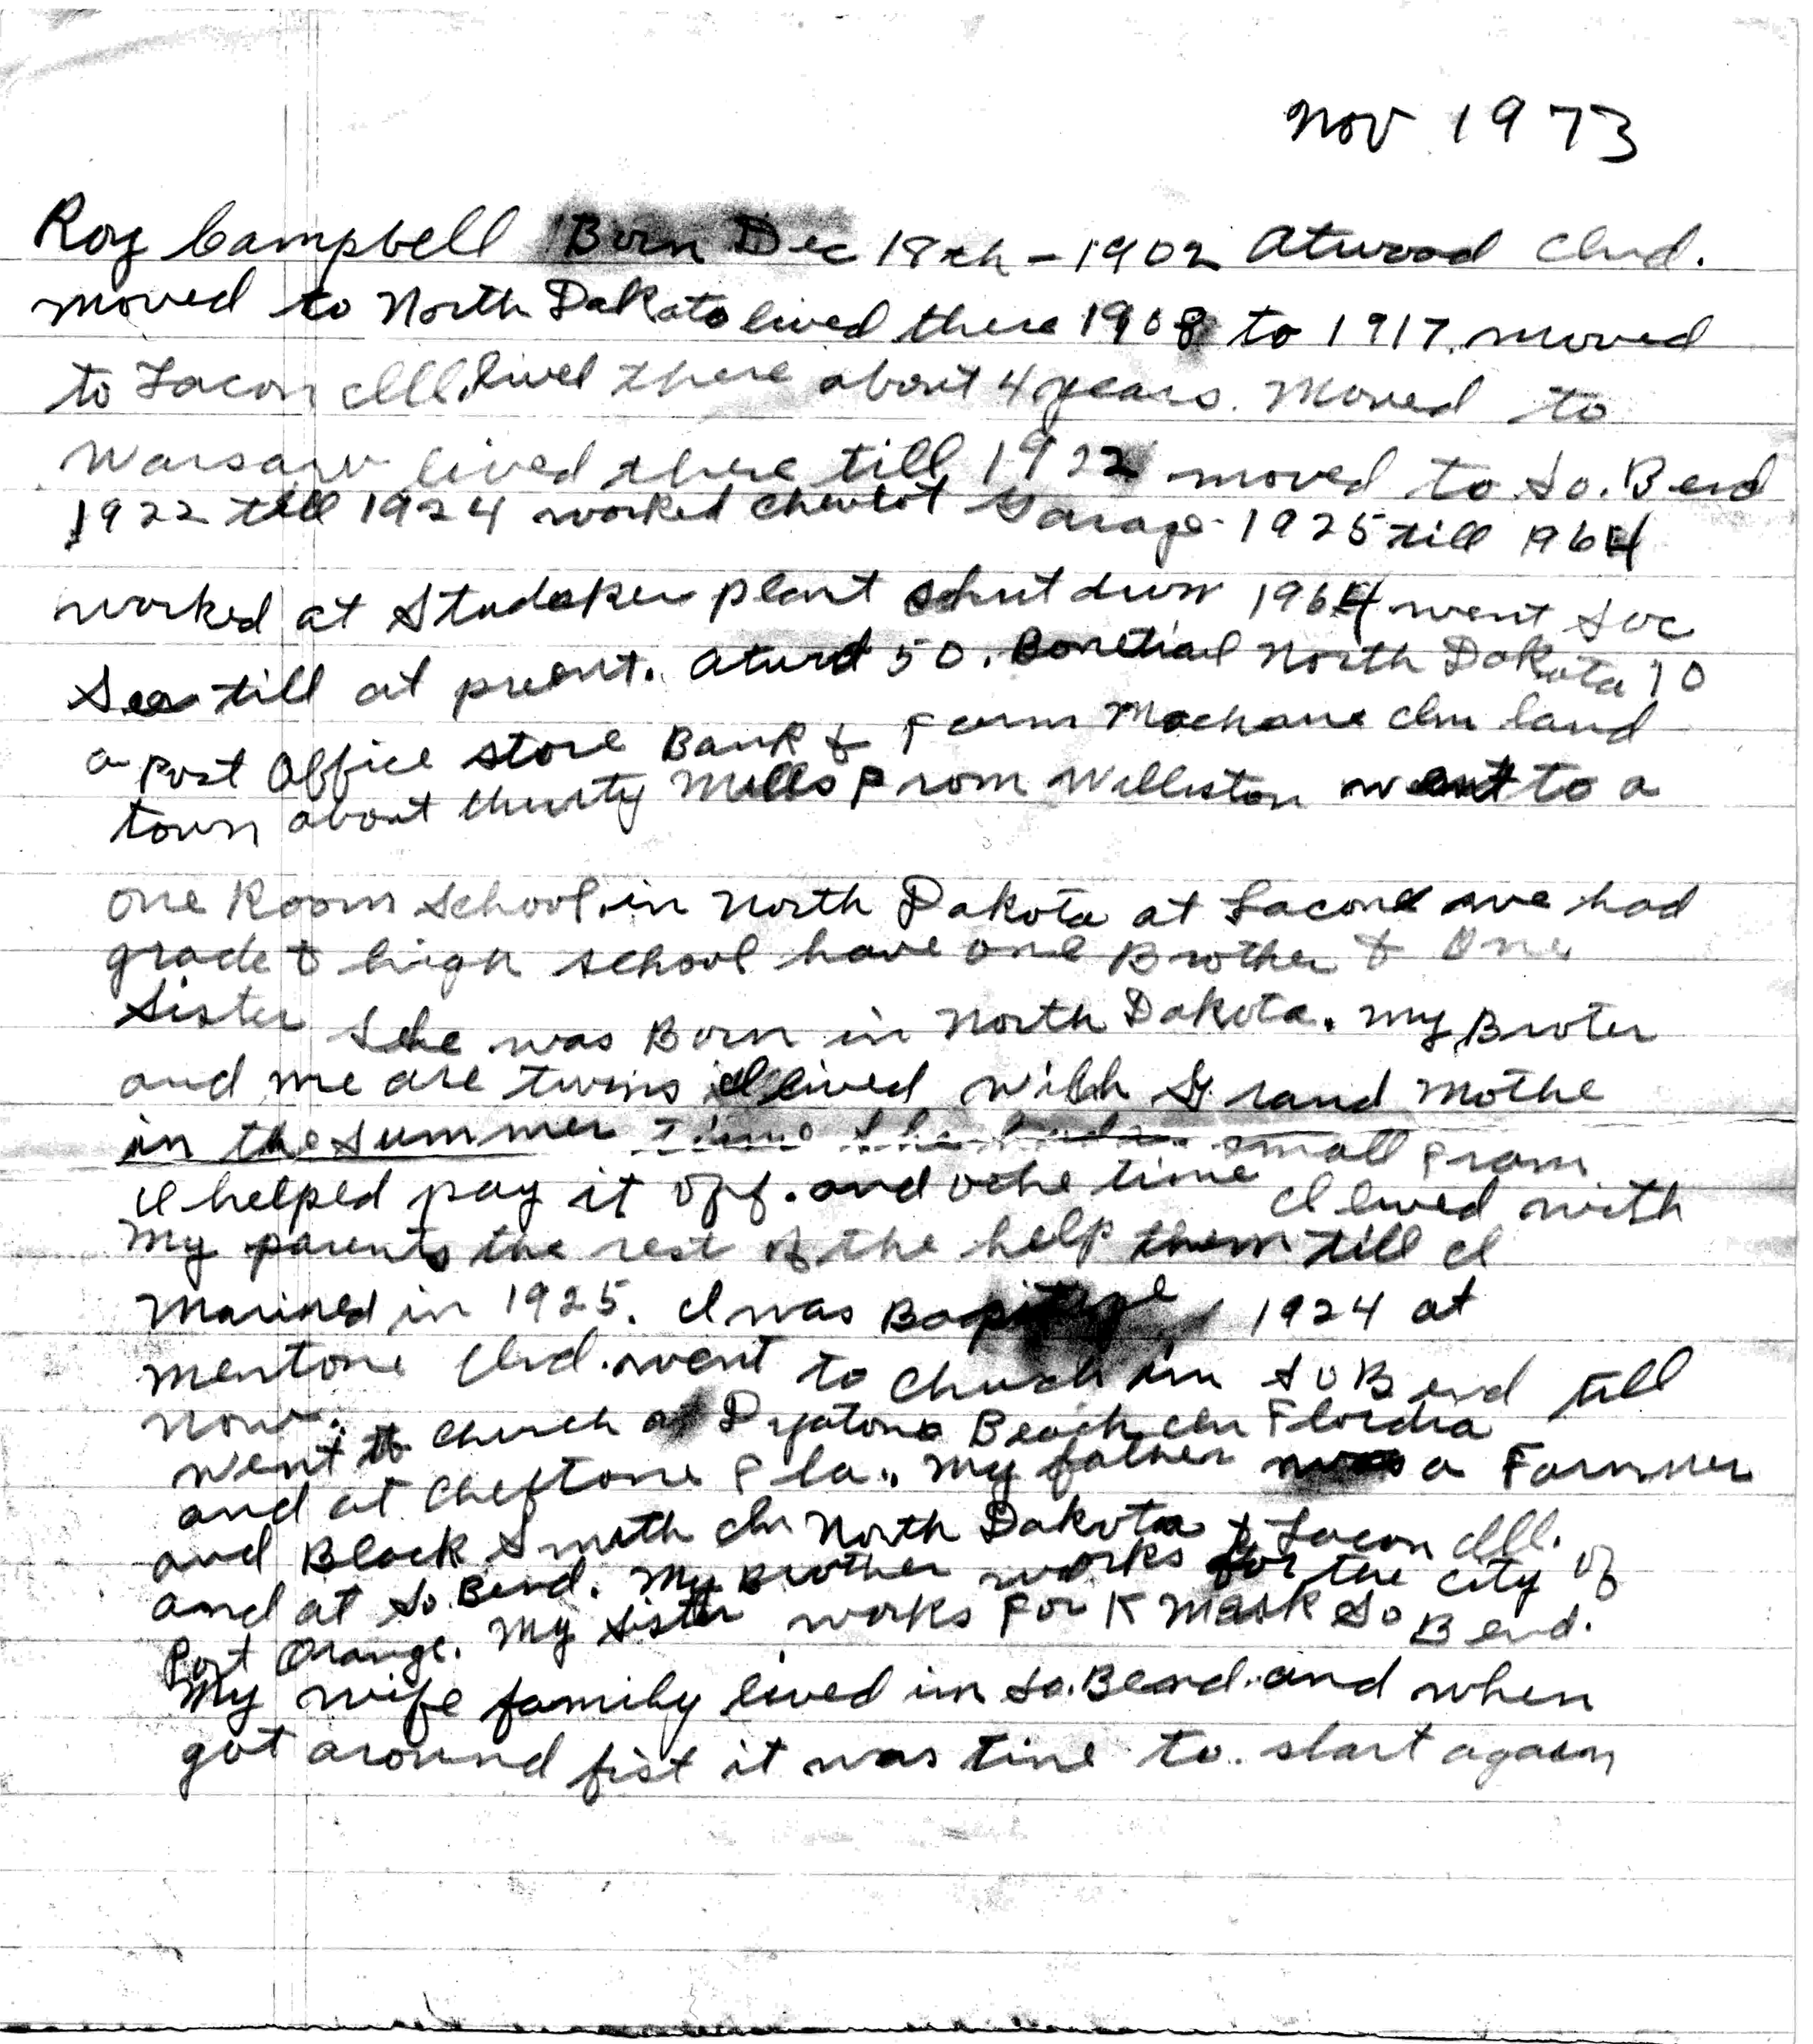 Nov 1973
Roy Campbell Born Dec 18th - 1902 Atwood Ind.
moved to North Dakato lived there 1908 to 1917. moved
to Lacon Ill. lived there about 4 years. Moved to
Warsaw lived there till 1922 moved to So. Bend
1922 till 1924 worked Chevlot Garage 1925 till 1964
worked at Studeker plant shut down 1964 went Soc
Sea till at preant. Atwrd 50. North Dakota 10
a Post Office store Bank & Farm Machane In land
town about thirty Mills From Williston went to a
one Room School in North Dakota at Lacon we had
grade & high school have one Brother & One
Sister She was Born in North Dakota. My Broter
and me are twins I lived with Grand Mothe
in the summer time she had a small Fram
I helped pay it off. and othe time I lived with
My parents the rest of the help them till I
Maried in 1925. I was 1924 at
Mentone Ind. went to Church in So Bend till
now.
Went to Church at Dyatona Beach In Flordia
and at Cheftone Fla.. My father was a Farmner
and Black Smith In North Dakota & Lacon Ill.
and at So. Bend. My Brother works for the city of
Port Orange. My Sister works For K Mask So Bend.
My wife family lived in So. Bend. and when
got around fist it was tine to. start again